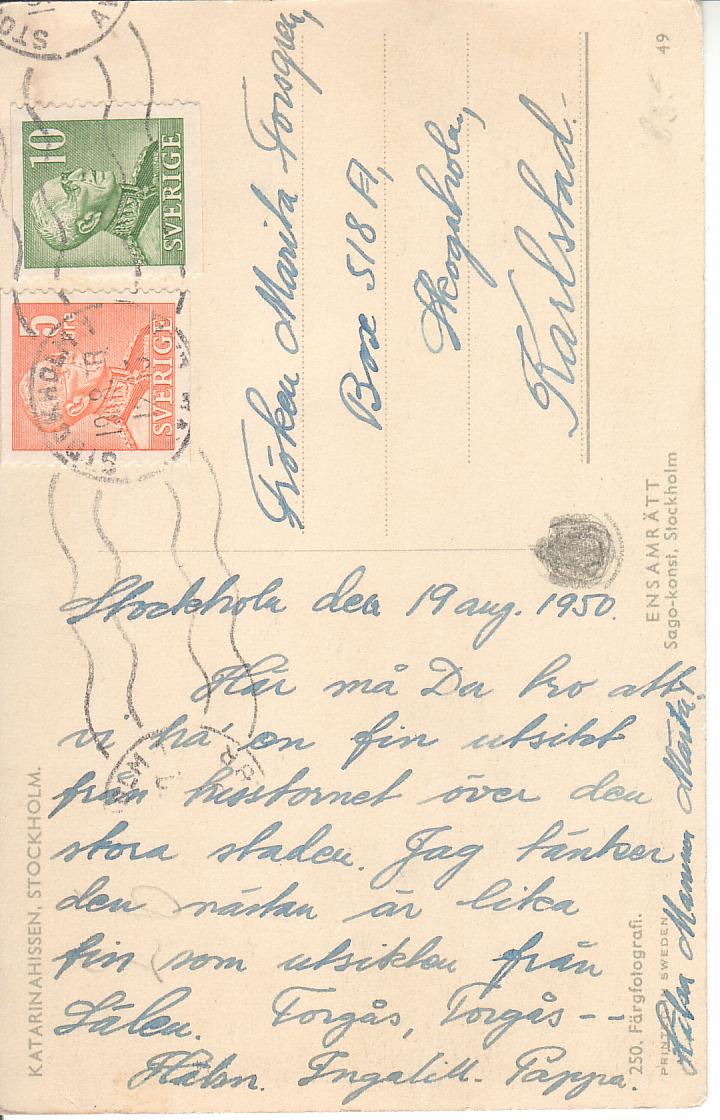 KATARINAHISSEN, STOCKHOLM.
Stockholm den 19 aug. 1950.
Här må Du tro att
vi ha' en fin utsikt
från hisstornet över den
stora staden. Jag tänker
den nästan är lika
fin som utsikten från
Sälen. Torgås, Torgås --
Hälsn. Ingalill. Pappa.
Hälsn Mamma Märta.
10
SVERIGE
5 öre
SVERIGE
Fröken Marita Forsgren,
Box 518 A,
Skogaholm,
Karlstad.
49
ENSAMRÄTT
Sago-konst, Stockholm
250. Färgfotografi.
PRINTED SWEDEN